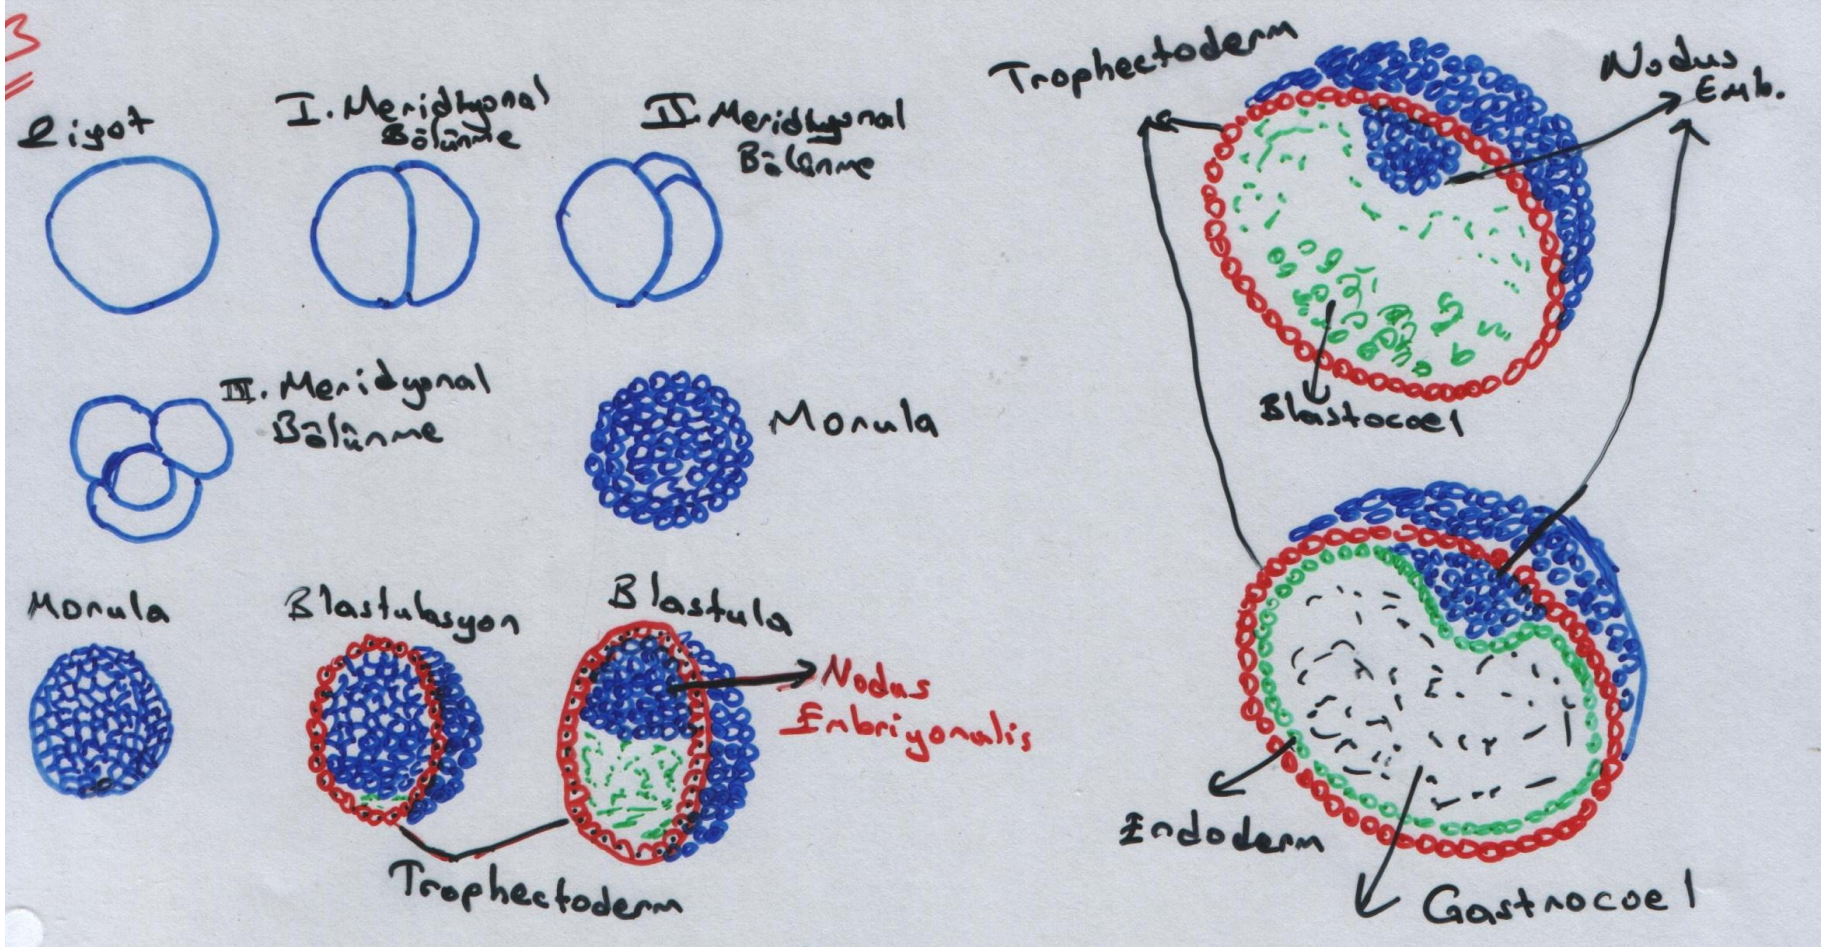 3
Zigot
I. Meridiyonal
Bölünme
II. Meridiyonal
Bölünme
III. Meridyonal
Bölünme
Morula
Morula
Blastulasyon
Blastula
Nodus
Embriyonalis
Trophectoderm
Trophectoderm
Nodus
Emb.
Blastocoel
Endoderm
Gastrocoel